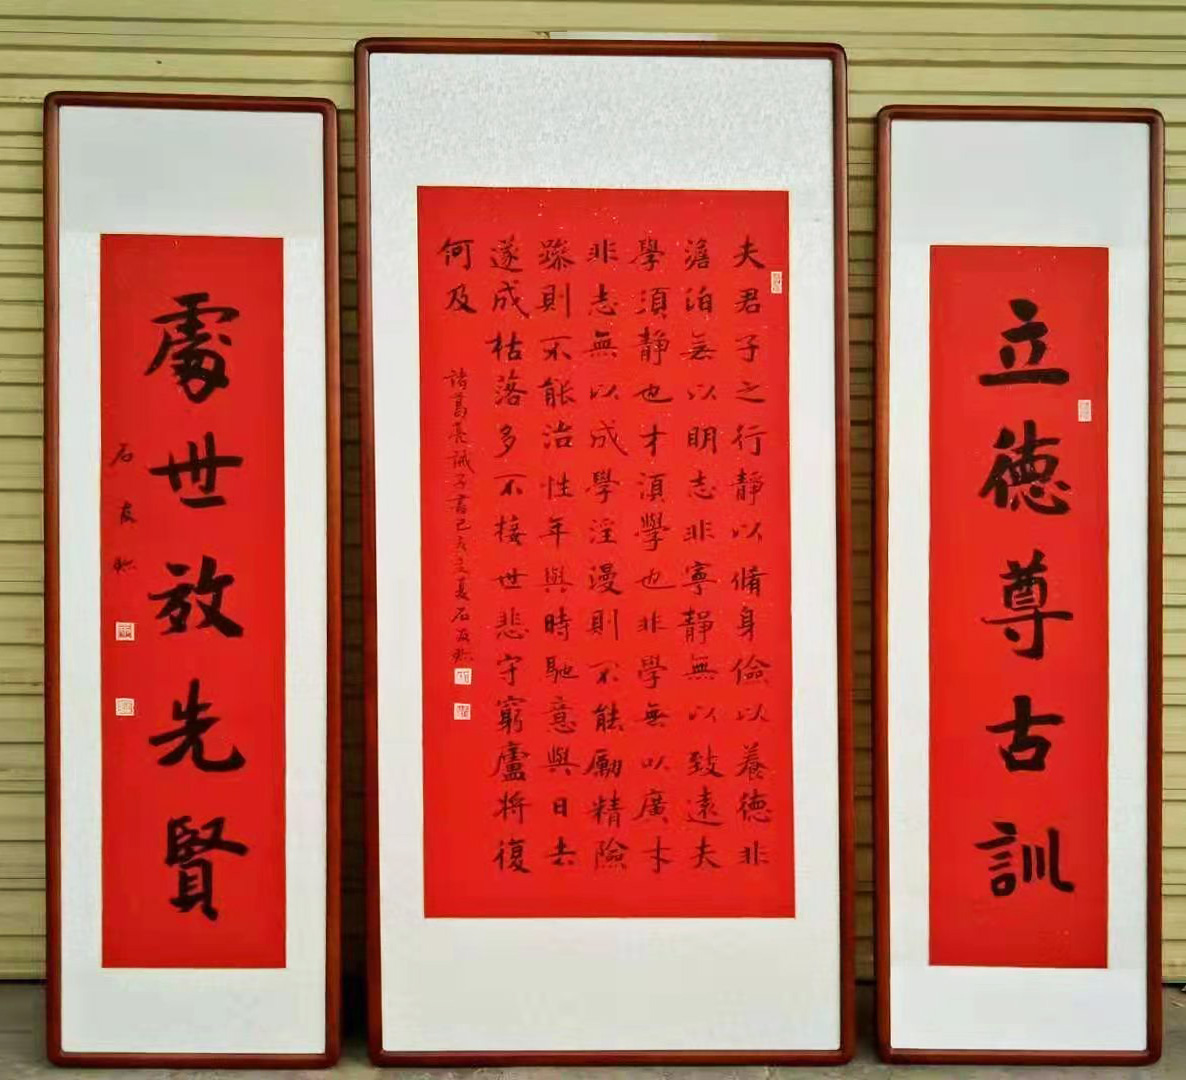 立德尊古訓
夫君子之行靜以脩身儉以養德非
澹泊無以明志非寧靜無以致遠夫
學須靜也才須學也非學無以廣才
非志無以成學淫漫則不能勵精險
躁則不能治性年與時馳意與日去
遂成枯落多不接世悲守窮廬將復
何及
諸葛亮誡子書己亥夏石友
處世效先賢
石友